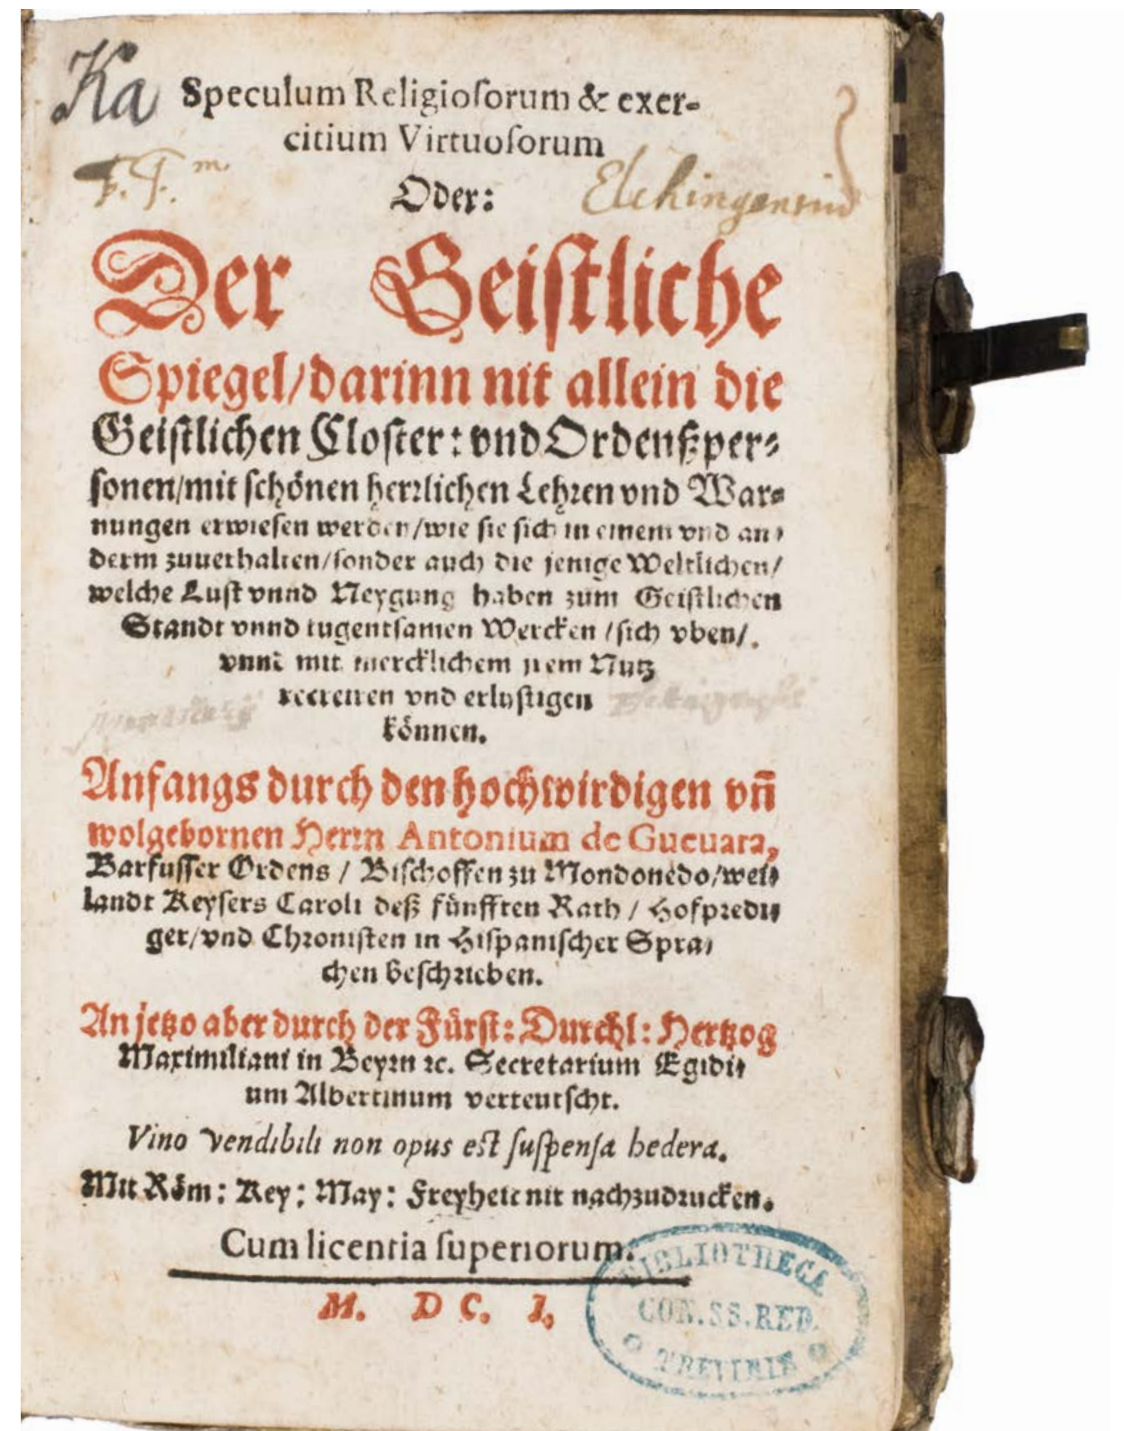 Ka
Speculum Religioſorum & exer-
citium Virtuoſorum
F. F. m.
Oder:
Elchingensis
Der Geiſtliche
Spiegel/darinn nit allein die
Geiſtlichen Cloſter: vnd Ordenßper-
ſonen/mit ſchönen herꝛlichen Lehꝛen vnd War-
nungen erwieſen werden/wie ſie ſich in einem vnd an-
derm zuuerhalten/ſonder auch die jenige Weltlichen/
welche Luſt vnnd Neygung haben zum Geiſtlichen
Standt vnnd tugentſamen Wercken /ſich vben/
vnnd mit mercklichem jrem Nutz
recreiren vnd erluſtigen
können.
Anfangs durch den hochwirdigen vn̄
wolgebornen Herꝛn Antonium de Gueuara,
Barfuſſer Ordens / Biſchoffen zu Mondonedo/wei-
landt Keyſers Caroli deß fünfften Rath / Hofpꝛedi-
ger/vnd Chꝛoniſten in Hiſpaniſcher Spra-
chen beſchꝛieben.
An jetzo aber durch der Fürſt: Durchl: Hertzog
Maximiliani in Beyꝛn ꝛc. Secretarium Egidi-
um Albertinum verteutſcht.
Vino vendibili non opus eſt ſuſpenſa hedera.
Mit Röm: Key: May: Freyheit nit nachzudꝛucken.
Cum licentia ſuperiorum.
M. D C. I.
BIBLIOTHECA
CON. SS. RED.
TREVIRIS